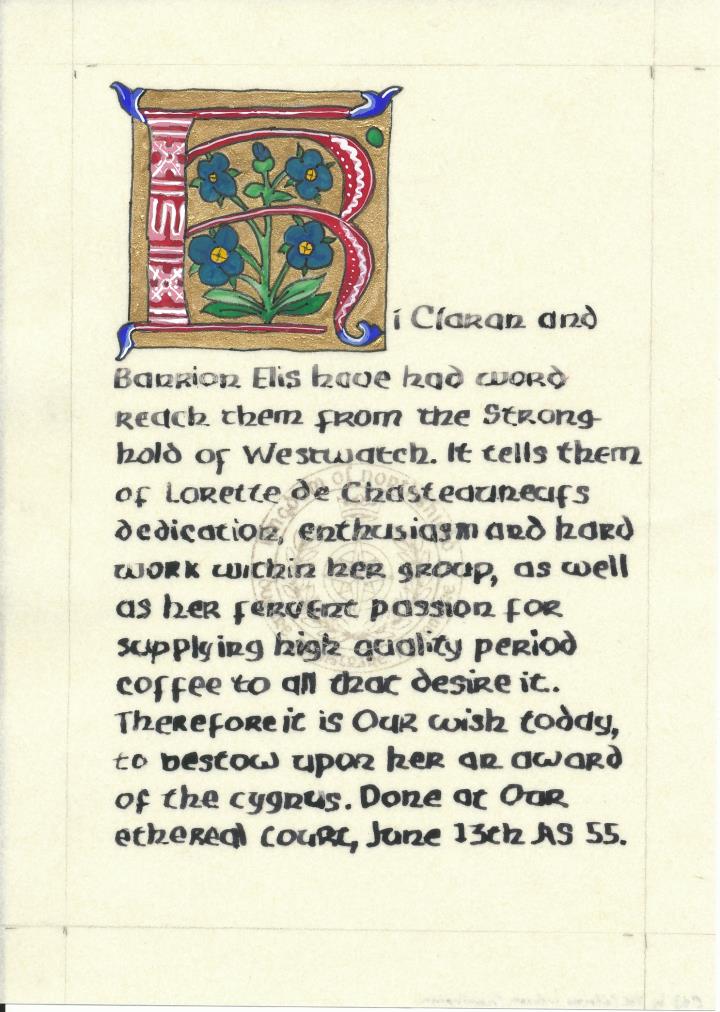 Ri Ciaran and
Banrion Elis have had word
reach them from the Strong-
hold of Westwatch. It tells them
of Lorette de Chasteauneufs
dedication, enthusiasm and hard
work within her group, as well
as her fervent passion for
supplying high quality period
coffee to all that desire it.
Therefore it is Our wish today,
to bestow upon her an award
of the cygnus. Done at Our
ethereal court, June 13th AS 55.